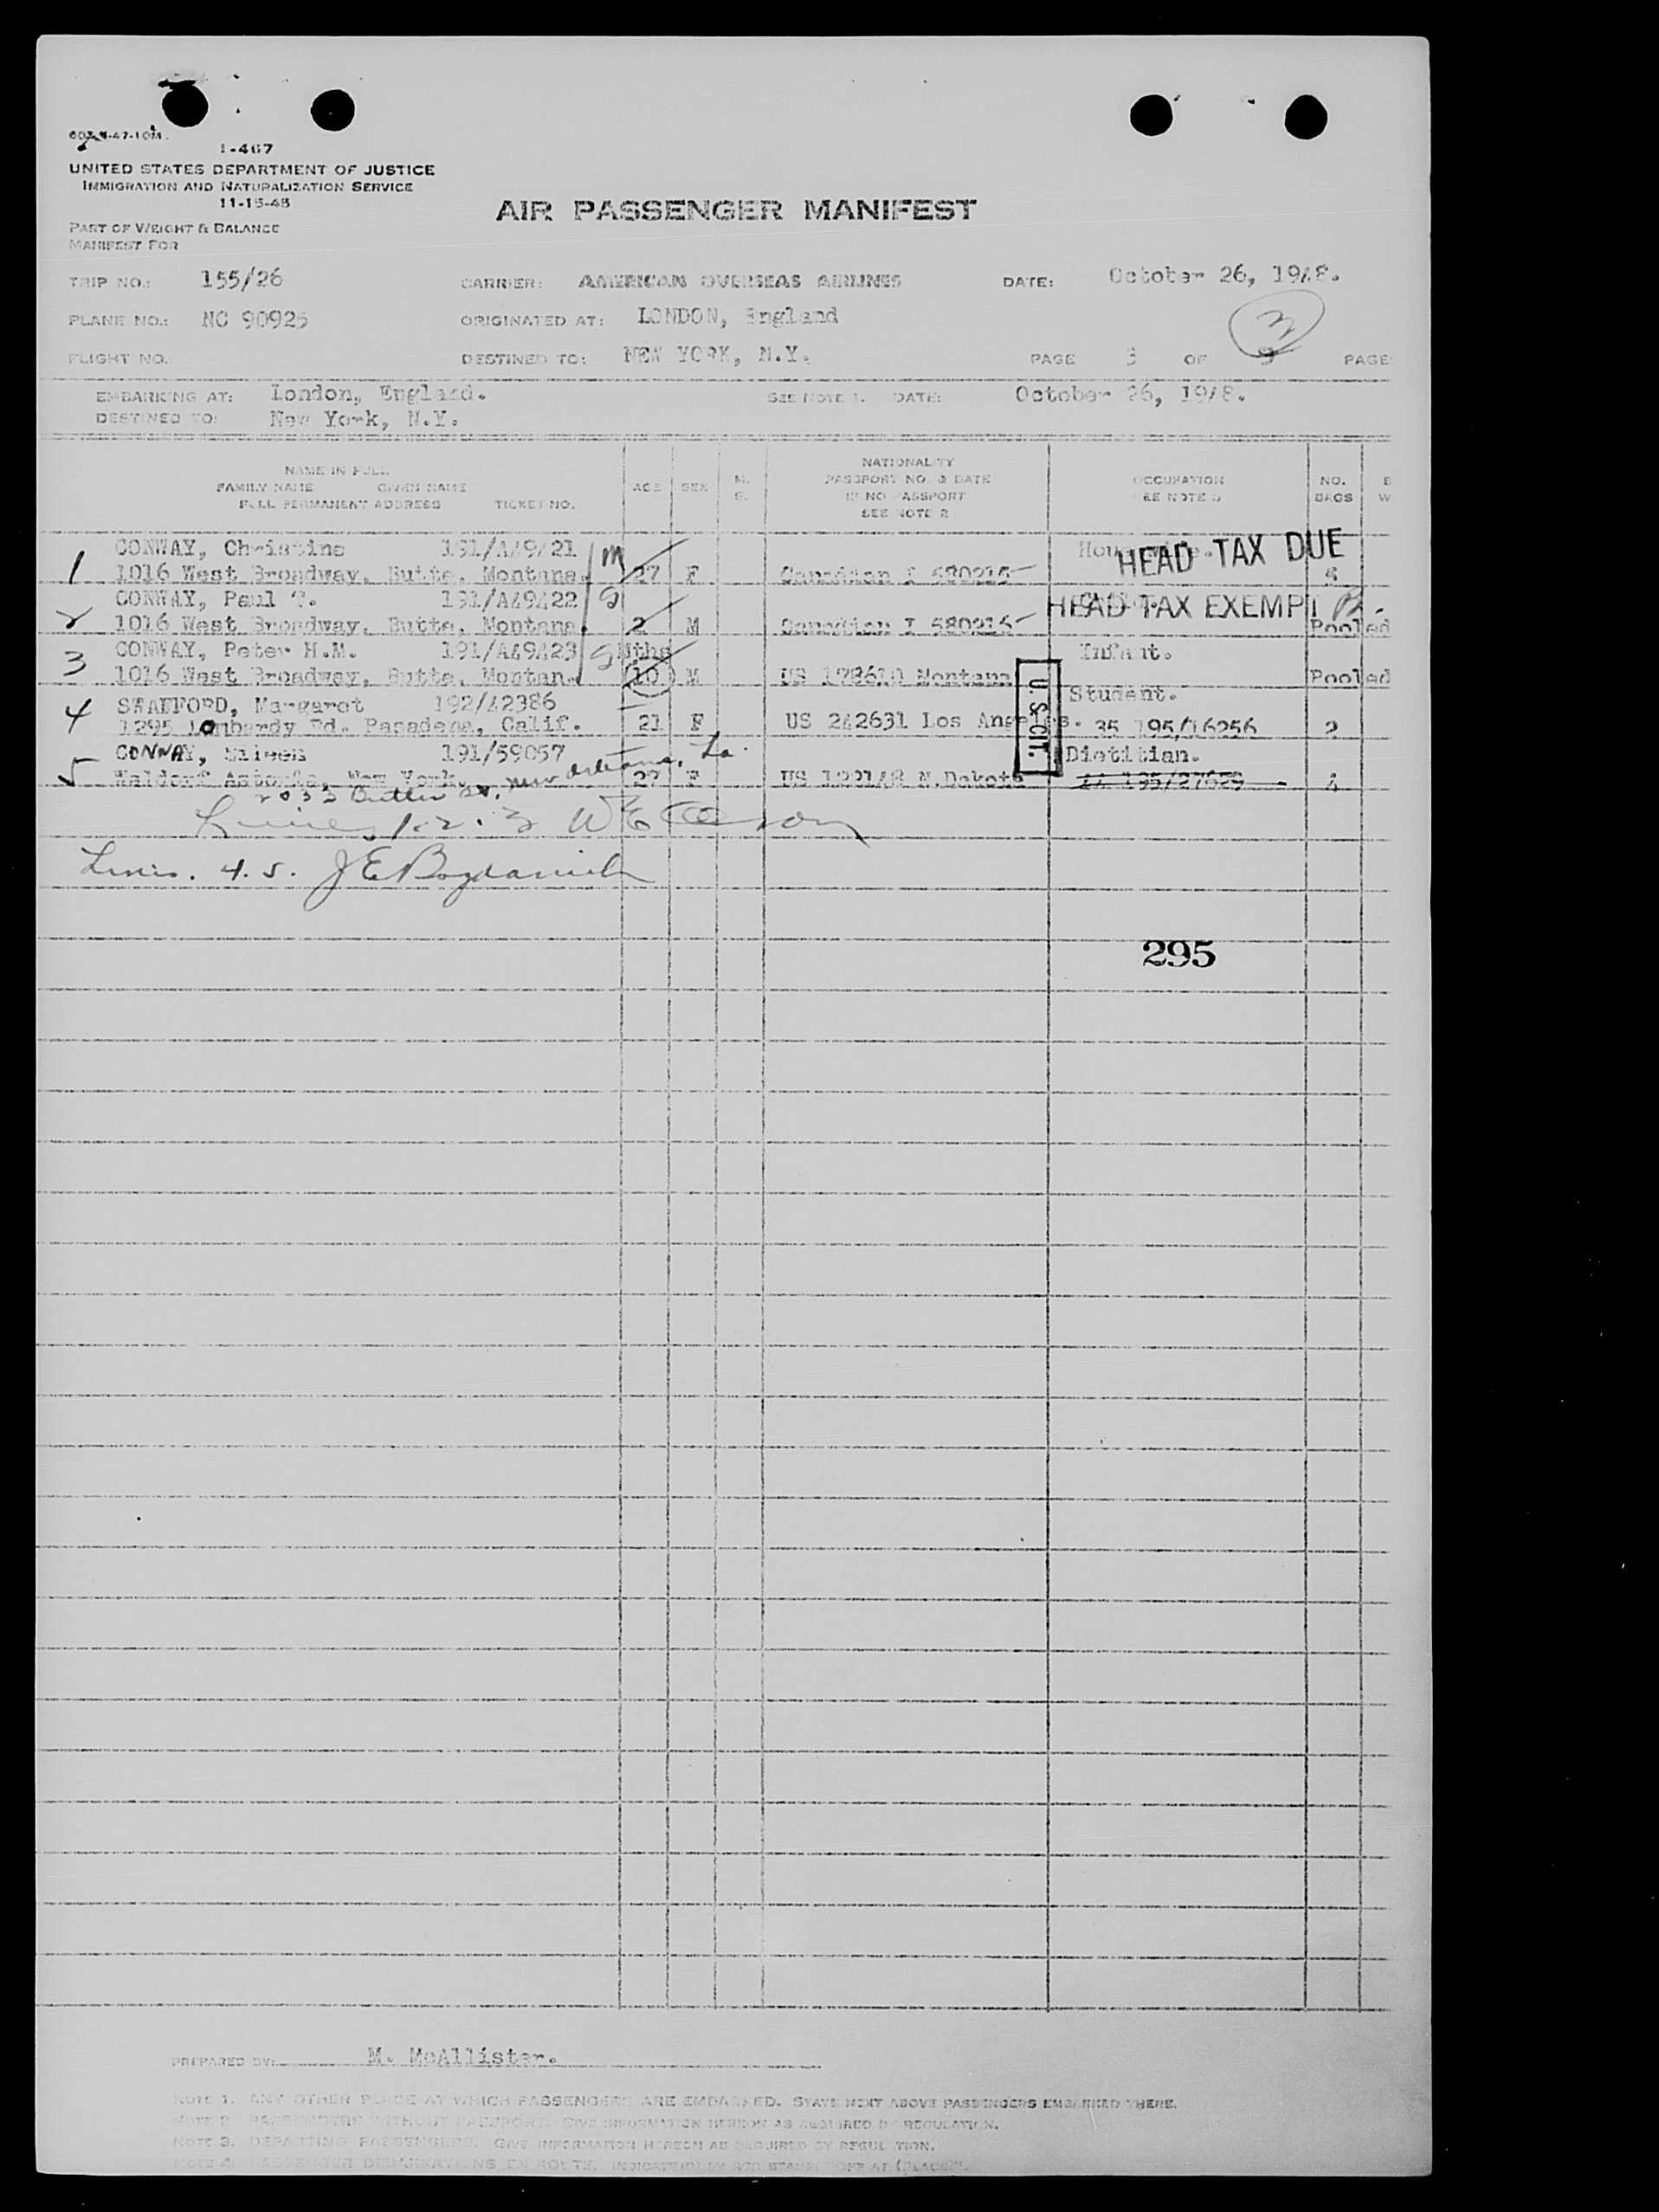 1-467
UNITED STATES DEPARTMENT OF JUSTICE
IMMIGRATION AND NATURALIZATION SERVICE
11-15-45
AIR PASSENGER MANIFEST
PART OF WEIGHT & BALANCE
MANIFEST FOR
TRIP NO.: 155/26 CARRIER: AMERICAN OVERSEAS AIRLINES DATE: October 26, 1948.
PLANE NO.: NC 90925 ORIGINATED AT: LONDON, England
3
FLIGHT NO. DESTINED TO: NEW YORK, N.Y. PAGE 3 OF PAGE
EMBARKING AT: London, England. SEE NOTE 1. DATE: October 26, 1948.
DESTINED TO: New York, N.Y.
NAME IN FULL
FAMILY NAME GIVEN NAME
FULL PERMANENT ADDRESS TICKET NO.
AGE SEX M. S.
NATIONALITY
PASSPORT NO. & DATE
IF NO PASSPORT
SEE NOTE 2
OCCUPATION
SEE NOTE 3
NO.
BAGS
CONWAY, Christine 191/A49421 M HEAD TAX DUE
1 1016 West Broadway, Butte, Montana. 27 F Canadian I 580215
CONWAY, Paul 191/A49422 S HEAD TAX EXEMPT
2 1016 West Broadway, Butte, Montana. 2 M Canadian I 580216 Pooled
CONWAY, Peter H.M. 191/A49423 S Mths Infant.
3 1016 West Broadway, Butte, Montana. 10 M US Montana Pooled
4 Margaret 192/42386 Student.
1295 Lombardy Rd. Pasadena, Calif. 21 F US 242631 Los Angeles. 35 195/16256 2
U.S. CIT.
CONWAY, Eileen 191/59057 Dietitian.
5 Waldorf Astoria, New York. 27 F US N.Dakota 195/27629 4
2033 New Orleans, La.
Lines 1.2.3
Lines. 4.5. J E Bogdanich
295
PREPARED BY: M. McAllister.
NOTE 1. ANY OTHER PLACE AT WHICH PASSENGERS ARE EMBARKED. STATE NEXT ABOVE PASSENGERS EMBARKED THERE.
NOTE 2. PASSENGERS WITHOUT PASSPORT. GIVE INFORMATION HEREON AS REQUIRED BY REGULATION.
NOTE 3. DEPARTING PASSENGERS. GIVE INFORMATION HEREON AS REQUIRED BY REGULATION.